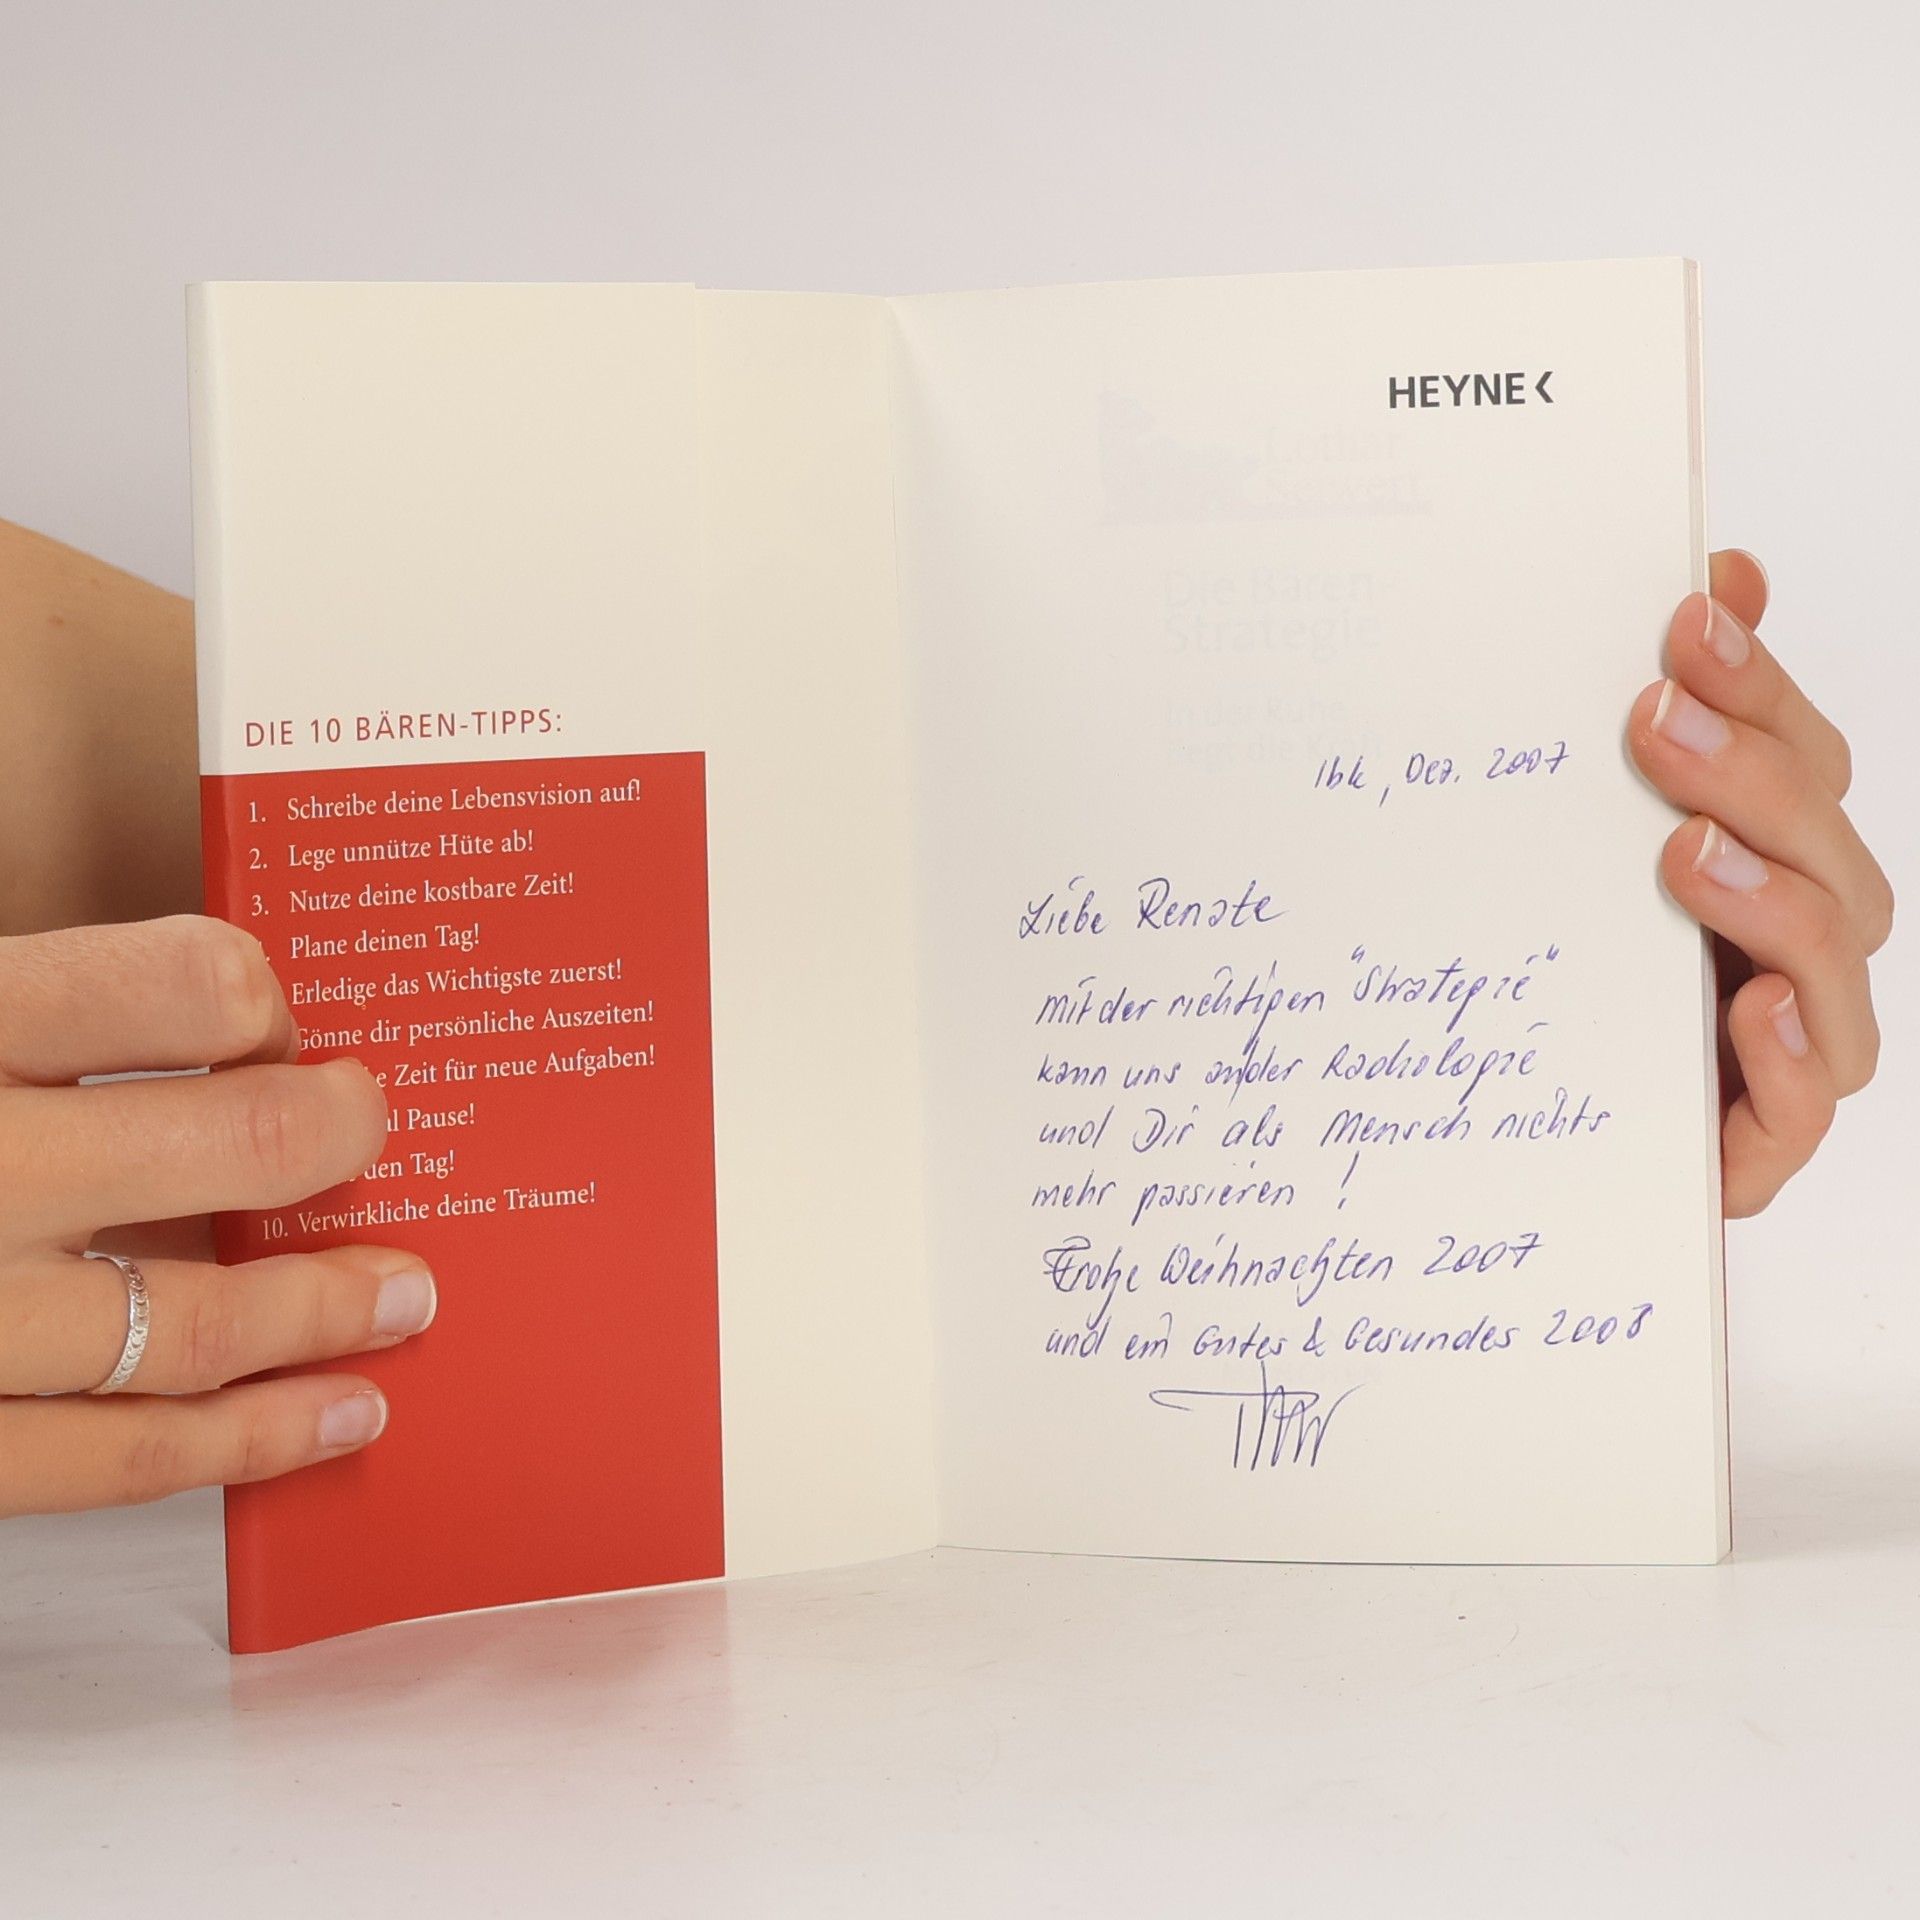 DIE 10 BÄREN-TIPPS:
1. Schreibe deine Lebensvision auf!
2. Lege unnütze Hüte ab!
3. Nutze deine kostbare Zeit!
Plane deinen Tag!
Erledige das Wichtigste zuerst!
Gönne dir persönliche Auszeiten!
Zeit für neue Aufgaben!
Pause!
den Tag!
10. Verwirkliche deine Träume!
HEYNE
Lothar
Seiwert
Die Bären-
Strategie
In der Ruhe
liegt die Kraft
Ibk, Dez. 2007
Liebe Renate
mit der richtigen "Strategie"
kann uns an der Radiologie
und Dir als Mensch nichts
mehr passieren!
Frohe Weihnachten 2007
und ein Gutes & Gesundes 2008